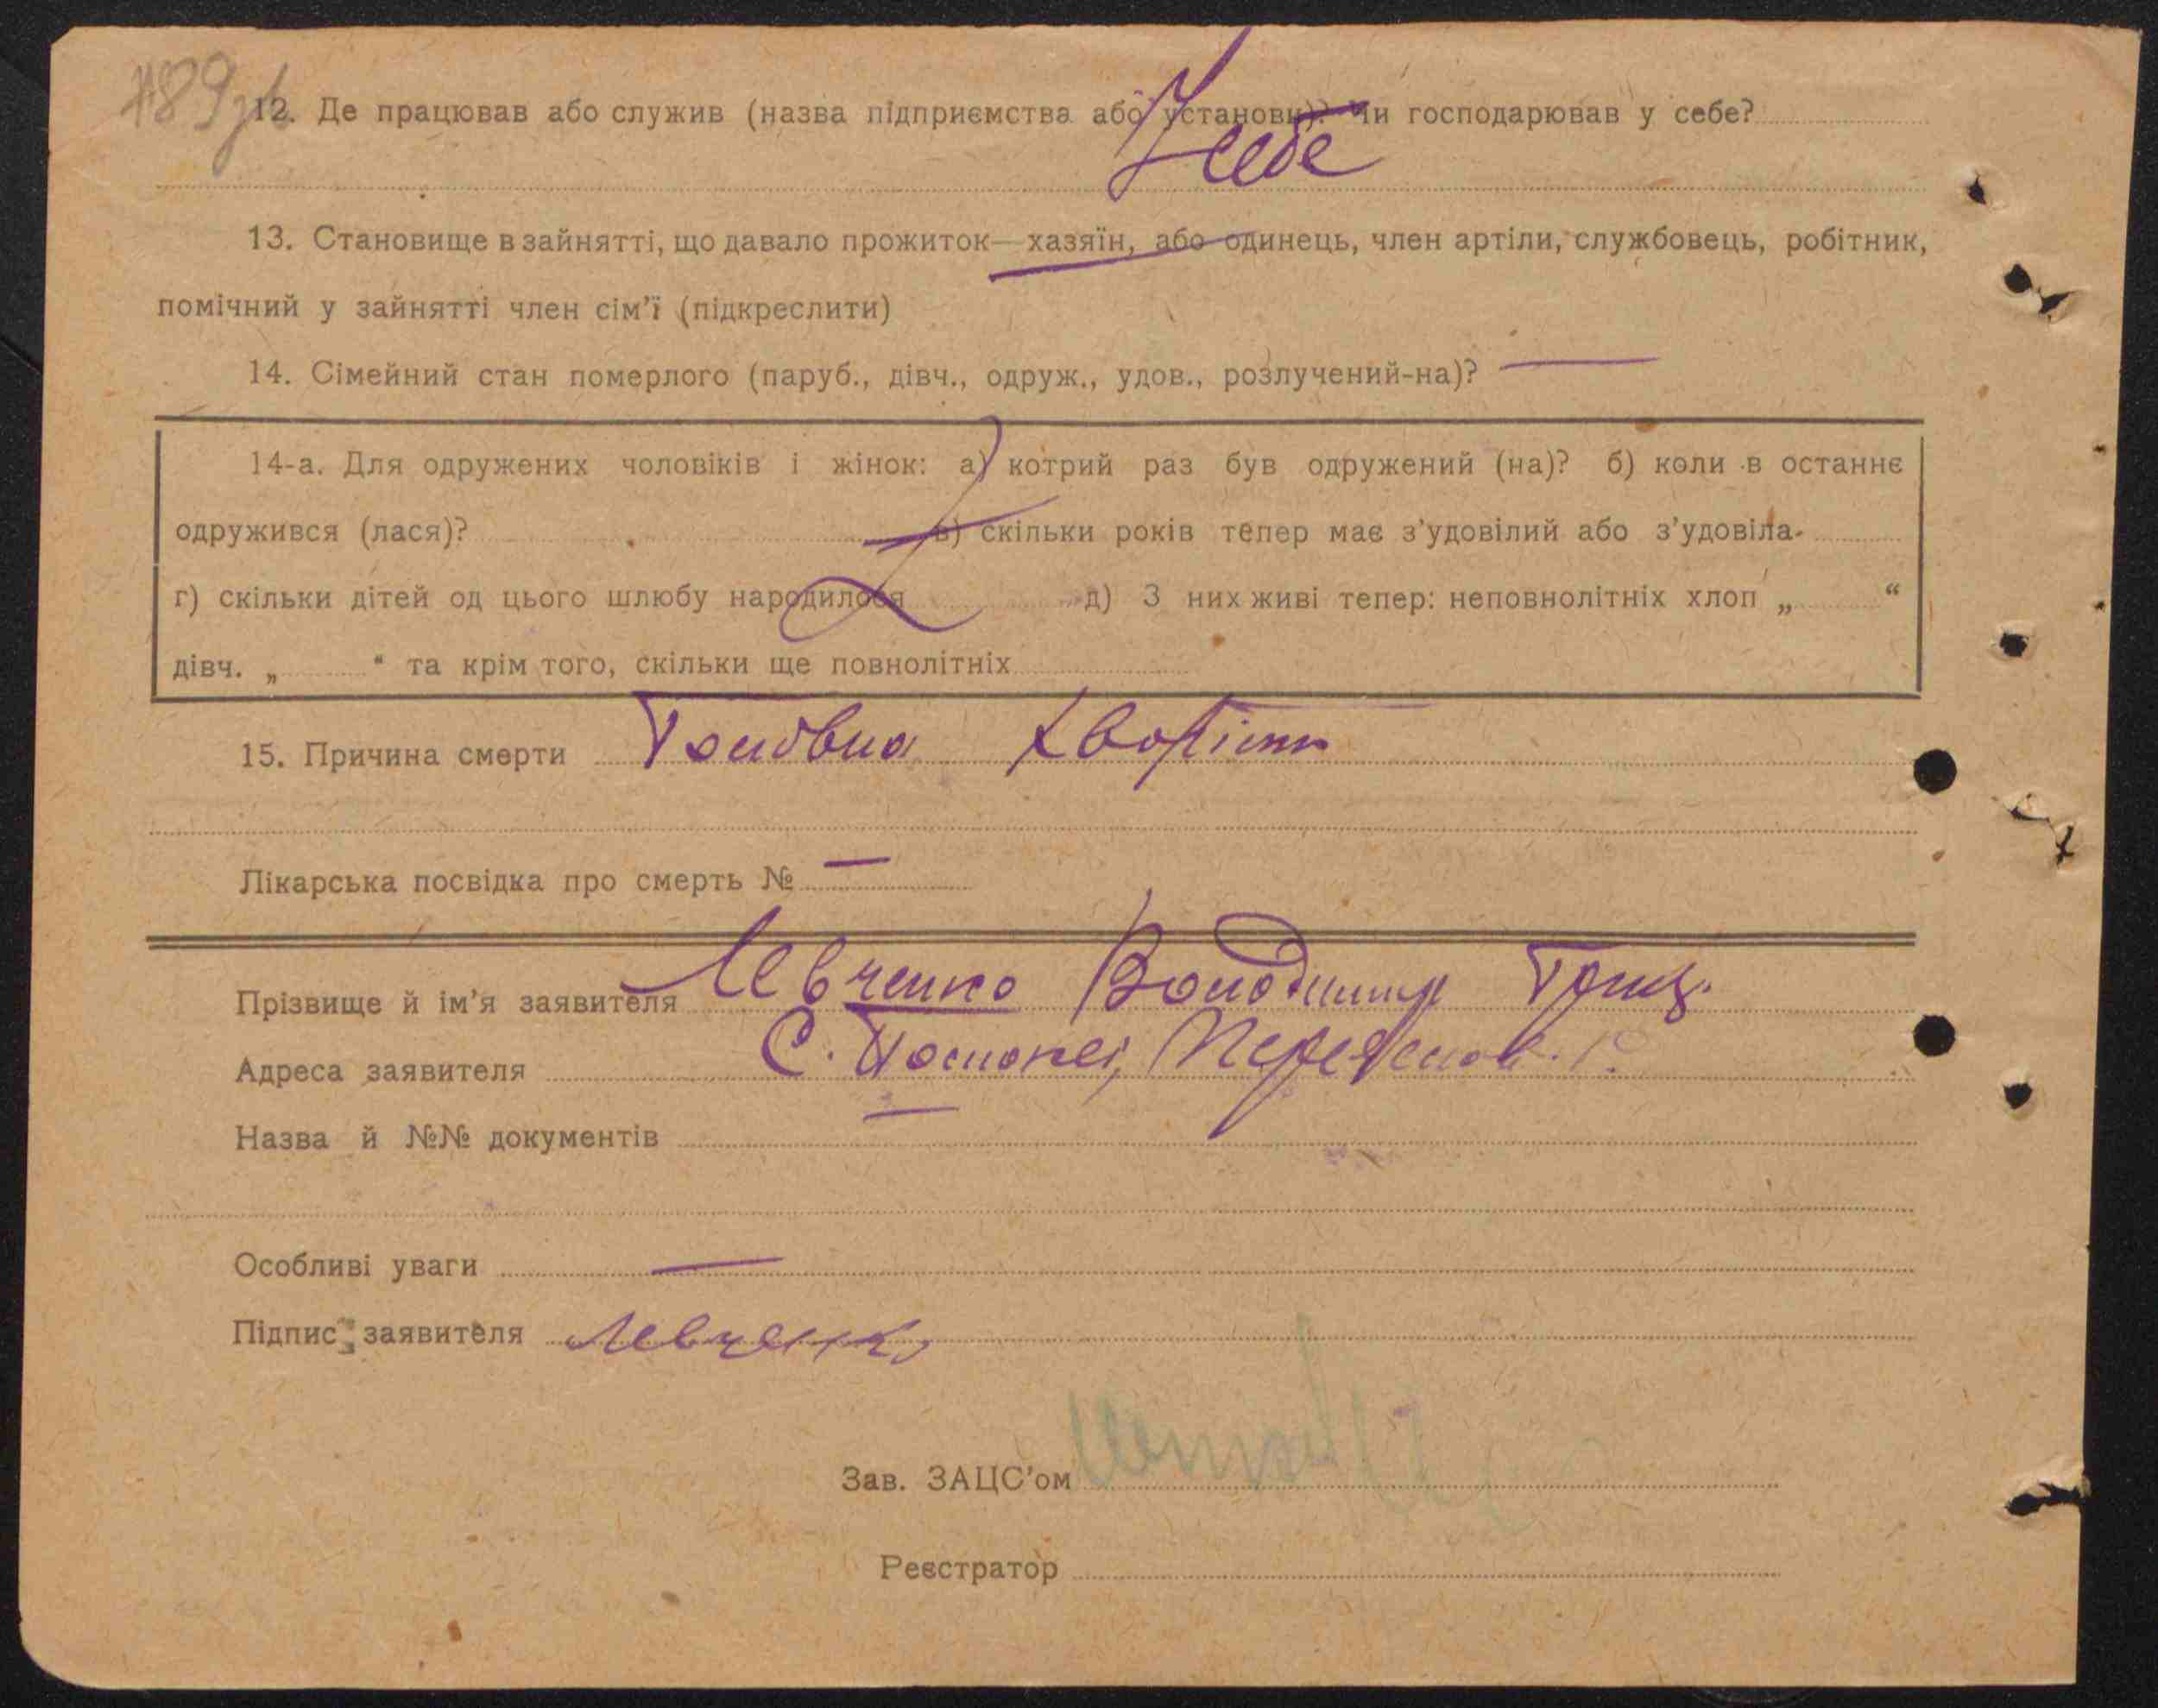 12. Де працював або служив (назва підприємства або установи)? Чи господарював у себе?
У себе
13. Становище в зайнятті, що давало прожиток—хазяїн, або одинець, член артіли, службовець, робітник,
помічний у зайнятті член сім'ї (підкреслити)
14. Сімейний стан померлого (паруб., дівч., одруж., удов., розлучений-на)? —
14-а. Для одружених чоловіків і жінок: а) котрий раз був одружений (на)? б) коли в останнє
одружився (лася)? в) скільки років тепер має з'удовілий або з'удовіла
г) скільки дітей од цього шлюбу народилося д) З них живі тепер: неповнолітніх хлоп „ “
дівч. „ “ та крім того, скільки ще повнолітніх
15. Причина смерти Головна хворість
Лікарська посвідка про смерть № —
Прізвище й ім'я заявителя Левченко Володимир Григ.
Адреса заявителя С.
Назва й №№ документів —
Особливі уваги —
Підпис заявителя Левченко
Зав. ЗАЦС'ом
Реєстратор